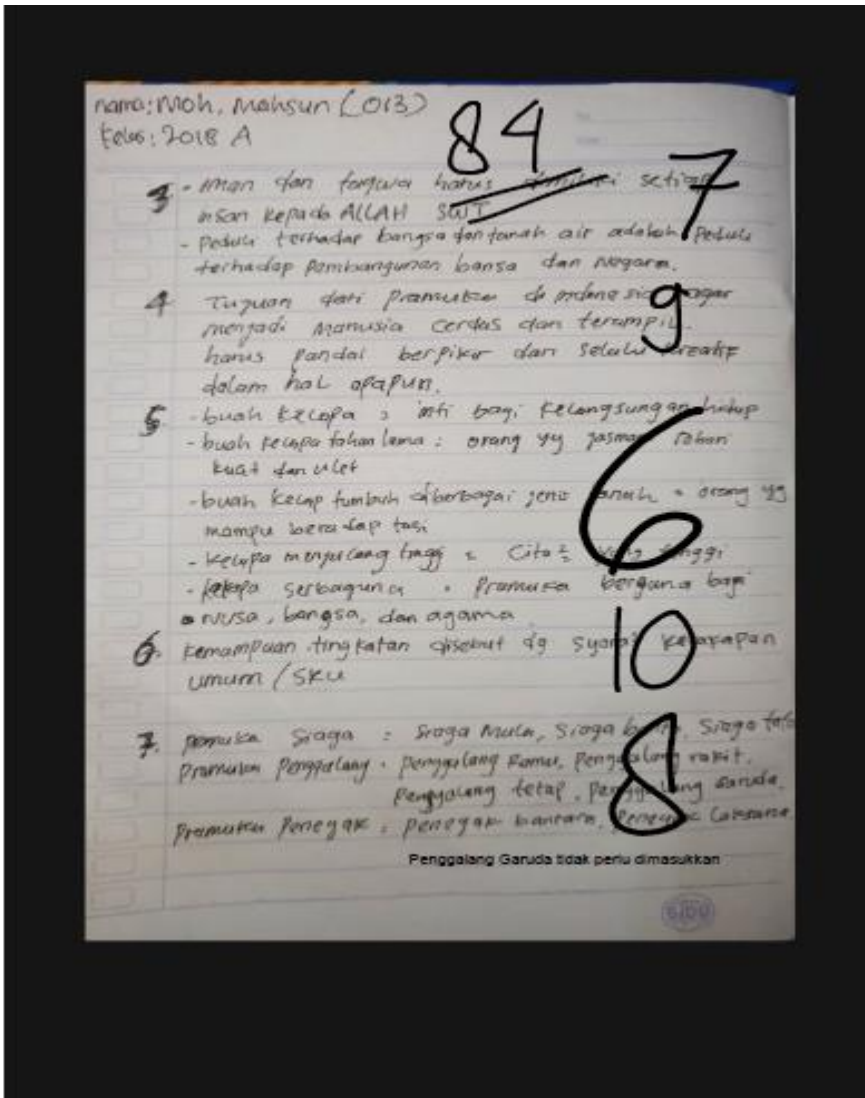 nama: Moh. Mahsun (013)
kelas: 2018 A
84
3 - Iman dan taqwa harus dimiliki setiap
insan kepada ALLAH SWT
7
- Peduli terhadap bangsa dan tanah air adalah peduli
terhadap pembangunan bansa dan negara.
4 Tujuan dari Pramuka agar
9
menjadi manusia cerdas dan terampil.
harus pandai berpikir dan selalu kreatif
dalam hal apapun.
5 - buah kelapa = inti bagi kelangsungan hidup
- buah kelapa tahan lama : orang yg jasmani rohani
kuat dan ulet
6
- buah kelap tumbuh diberbagai jenis tanah = orang yg
mampu beradaptasi
- kelapa menjulang tinggi = cita2 yang tinggi
- kelapa serbaguna = Pramuka berguna bagi
nusa, bangsa, dan agama
6. kemampuan tingkatan disebut dg syarat kecakapan
10
umum / SKU
7. Pramuka Siaga = Siaga Mula, Siaga bantu, Siaga tata
Pramuka Penggalang = Penggalang Ramu, Penggalang rakit,
8
Penggalang tetap, Penggalang Garuda.
Pramuka Penegak = Penegak bantara, Penegak Laksana
Penggalang Garuda tidak perlu dimasukkan